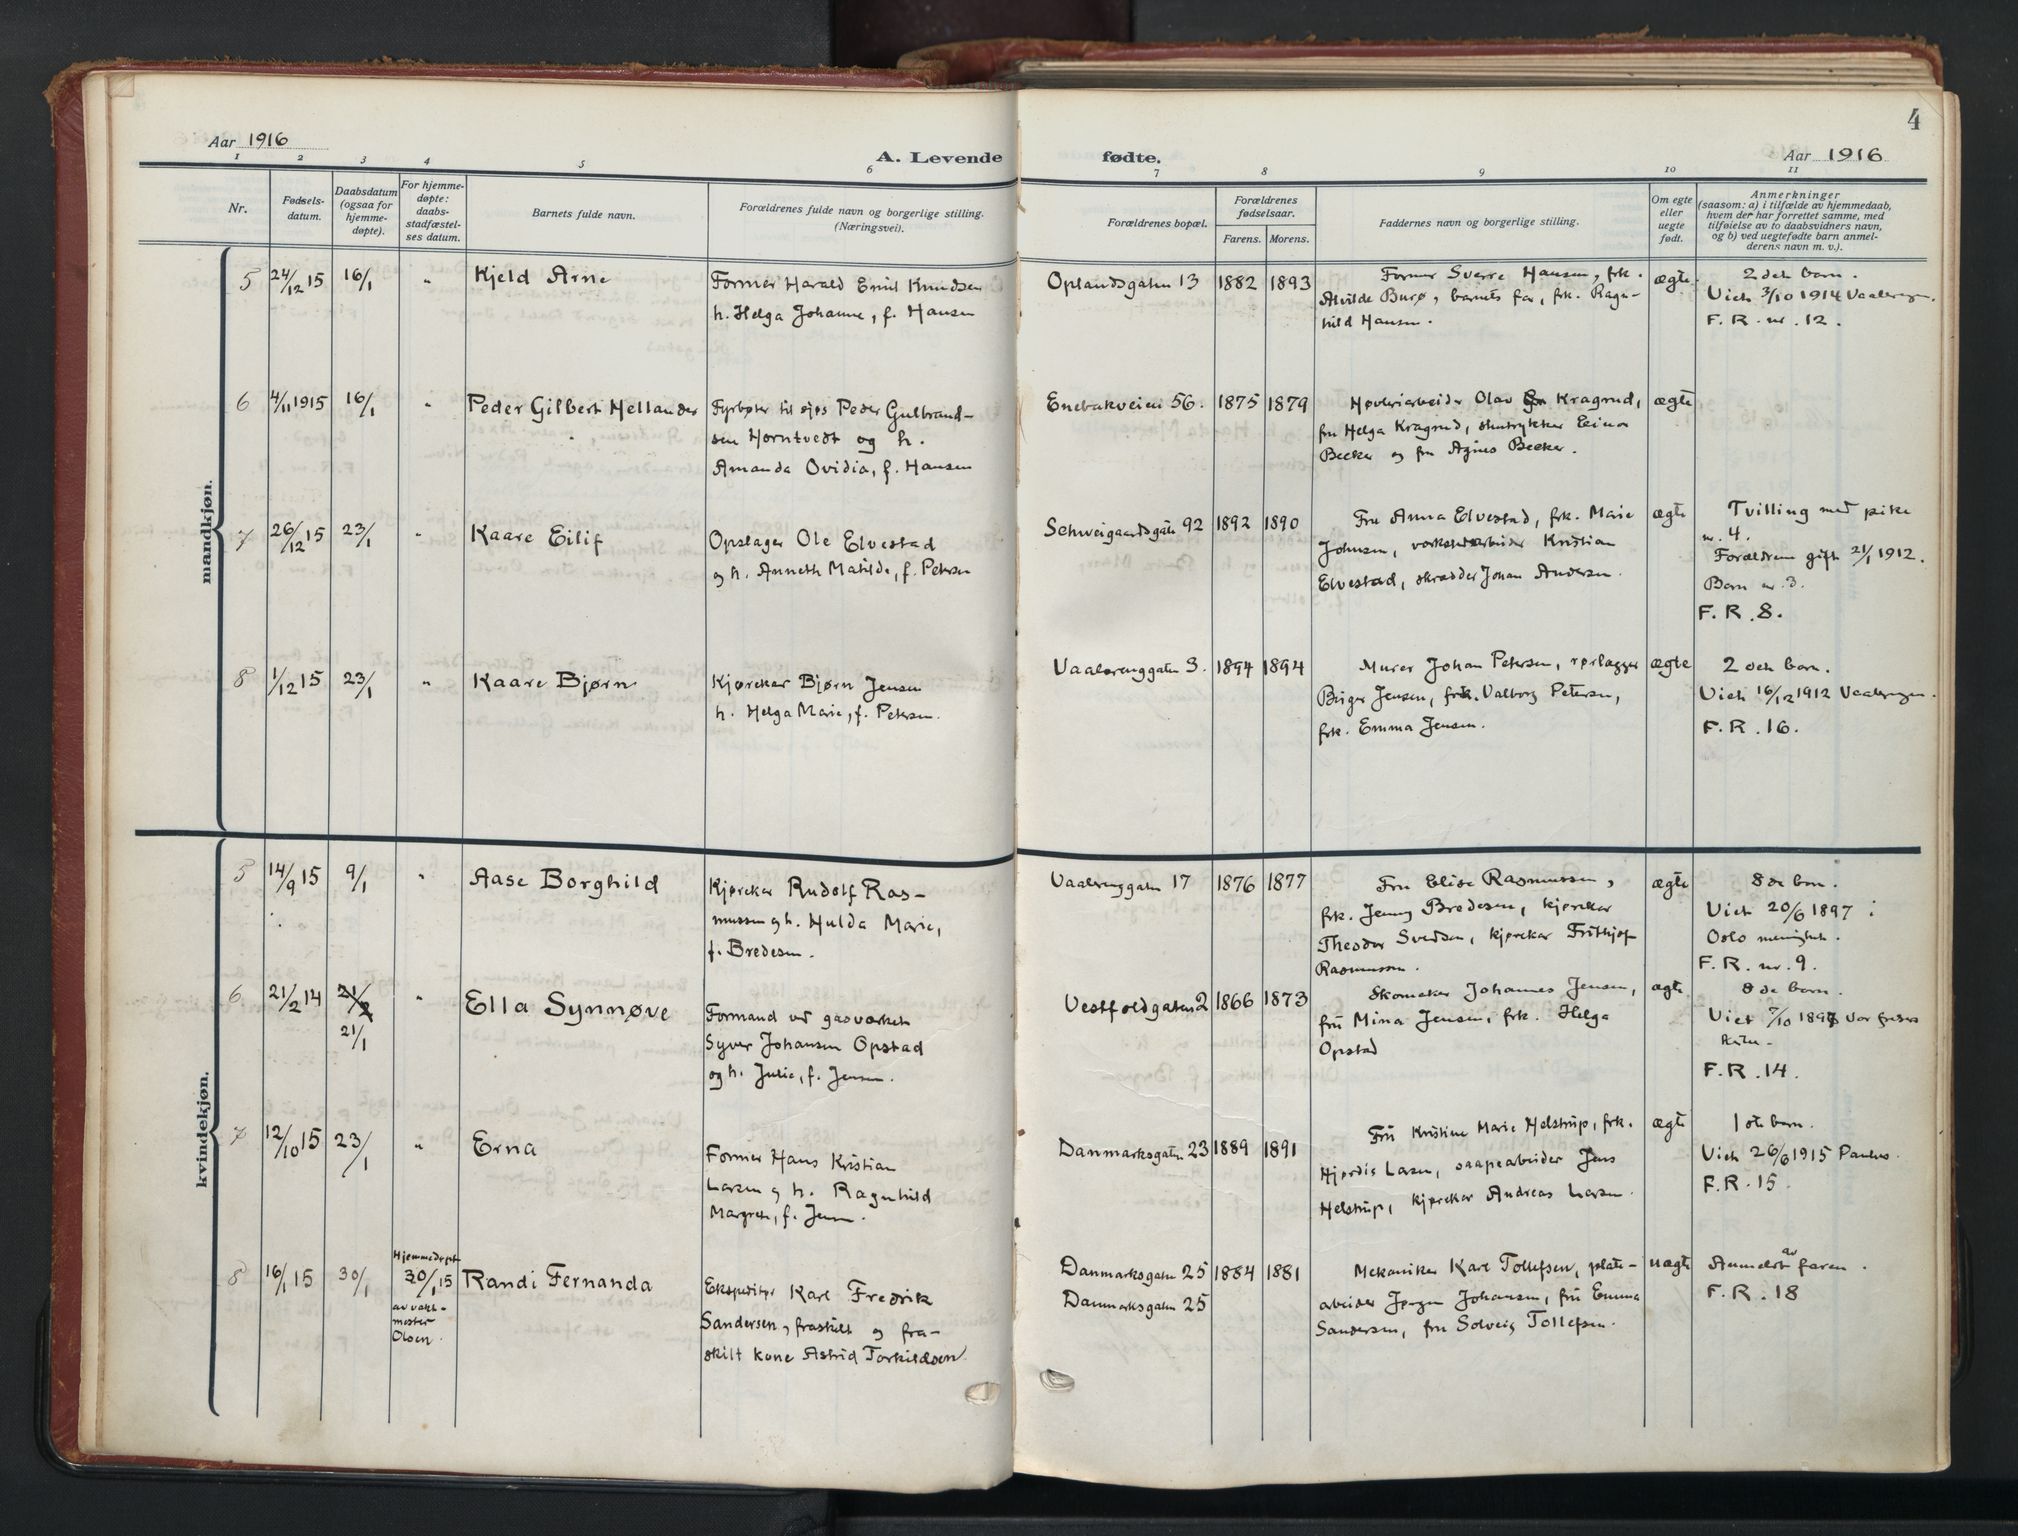 Aar 1916
A. Levende
fødte.
4
Aar 1916
1 2 3 4 5 6 7 8 9 10 11
Nr.
Fødsels-
datum.
Daabsdatum
(ogsaa for
hjemme-
døpte).
For hjemme-
døpte:
daabs-
stadfæstel-
ses datum.
Barnets fulde navn.
Forældrenes fulde navn og borgerlige stilling.
(Næringsvei).
Forældrenes bopæl.
Forældrenes
fødselsaar.
Farens. Morens.
Faddernes navn og borgerlige stilling.
Om egte
eller
uegte
født.
Anmerkninger
(saasom: a) i tilfælde av hjemmedaab,
hvem der har forrettet samme, med
tilføielse av to daabsvidners navn,
og b) ved uegtefødte barn anmel-
derens navn m. v.).
mandkjøn.
5 24/12 15 16/1 " Kjeld Arne
Former Harald Emil Knudsen
h. Helga Johanne, f. Hansen
Oplandsgaten 13 1882 1893
Former Sverre Hansen, frk.
Alvilde Burø, barnets far, frk. Ragn-
hild Hansen.
ægte
2 det barn.
Viet 3/10 1914 Vaalerengen.
F. R. nr. 12.
6 4/11 1915 16/1 " Peder Gilbert Hellander
Fyrbøter til sjøs Peder Gulbrand-
sen Horntvedt og h.
Amanda Ovidia, f. Hansen
Enebakveien 56. 1875 1879
Høveriarbeider Olav Kragrud,
fru Helga Kragrud, Einar
Becker og fru Agnes Becker.
ægte
7 26/12 15 23/1 " Kaare Eilif
Opslager Ole Elvestad
og h. Anneth Matilde, f. Petersen
Schweigaardsgate 92 1892 1890
Fru Anna Elvestad, frk. Marie
Johnsen, verkstedarbeider Kristian
Elvestad, skrædder Johan Andersen.
ægte
Tvilling med pike
nr. 4.
Forældrene gift 21/1 1912.
Barn nr. 3.
F. R. 8.
8 1/12 15 23/1 " Kaare Bjørn
Kjørekar Bjørn Jensen
h. Helga Marie, f. Petersen.
Vaalerenggaten 3. 1894 1894
Murer Johan Petersen, rørlægger
Birger Jensen, frk. Valborg Petersen,
frk. Emma Jensen.
ægte
2 det barn.
Viet 16/12 1912 Vaalerengen.
F. R. 16.
kvindekjøn.
5 14/9 15 9/1 " Aase Borghild
Kjørekar Rudolf Ras-
mussen og h. Hulda Marie,
f. Bredesen.
Vaalerenggaten 17 1876 1877
Fru Elise Rasmussen,
frk. Jenny Bredesen, kjørekar
Theodor Svedsen, kjørekar Frithjof
Rasmussen.
ægte
8 de barn.
Viet 20/6 1897 i
Oslo menighet.
F. R. nr. 9.
6 21/2 14 21/2 " Ella Synnøve
21/1
Formand ved gasværket
Syver Johansen Opstad
og h. Julie, f. Jensen.
Vestfoldgaten 2 1866 1873
Skomaker Johannes Jensen,
frü Mina Jensen, frk. Helga
Opstad
ægte
8 de barn.
Viet 7/10 1897 Vor frelsers
kirke.
F. R. 14.
7 12/10 15 23/1 " Erna
Former Hans Kristian
Larsen og h. Ragnhild
Margrete, f. Jensen.
Danmarksgaten 23 1889 1891
Frü Kristine Marie Helstrup, frk.
Hjørdis Larsen, saapearbeider Jens
Helstrup, kjørekar Andreas Larsen.
ægte
1 ste barn.
Viet 26/6 1915 Paulus.
F. R. 15.
8 16/1 15 30/1
Hjemmedøpt
30/1 15
av vakt-
mester
Olsen.
Randi Fernanda
Ekspeditør Karl Fredrik
Sandersen, fraskilt og fra-
skilt kone Astrid Torkildsen
Danmarksgaten 25 1884 1881
Danmarksgaten 25
Mekaniker Karl Tollefsen, plate-
arbeider Jørgen Johansen, frü Emma
Sandersen, fru Solveig Tollefsen.
uægte
Anmeldt av faren.
F. R. 18